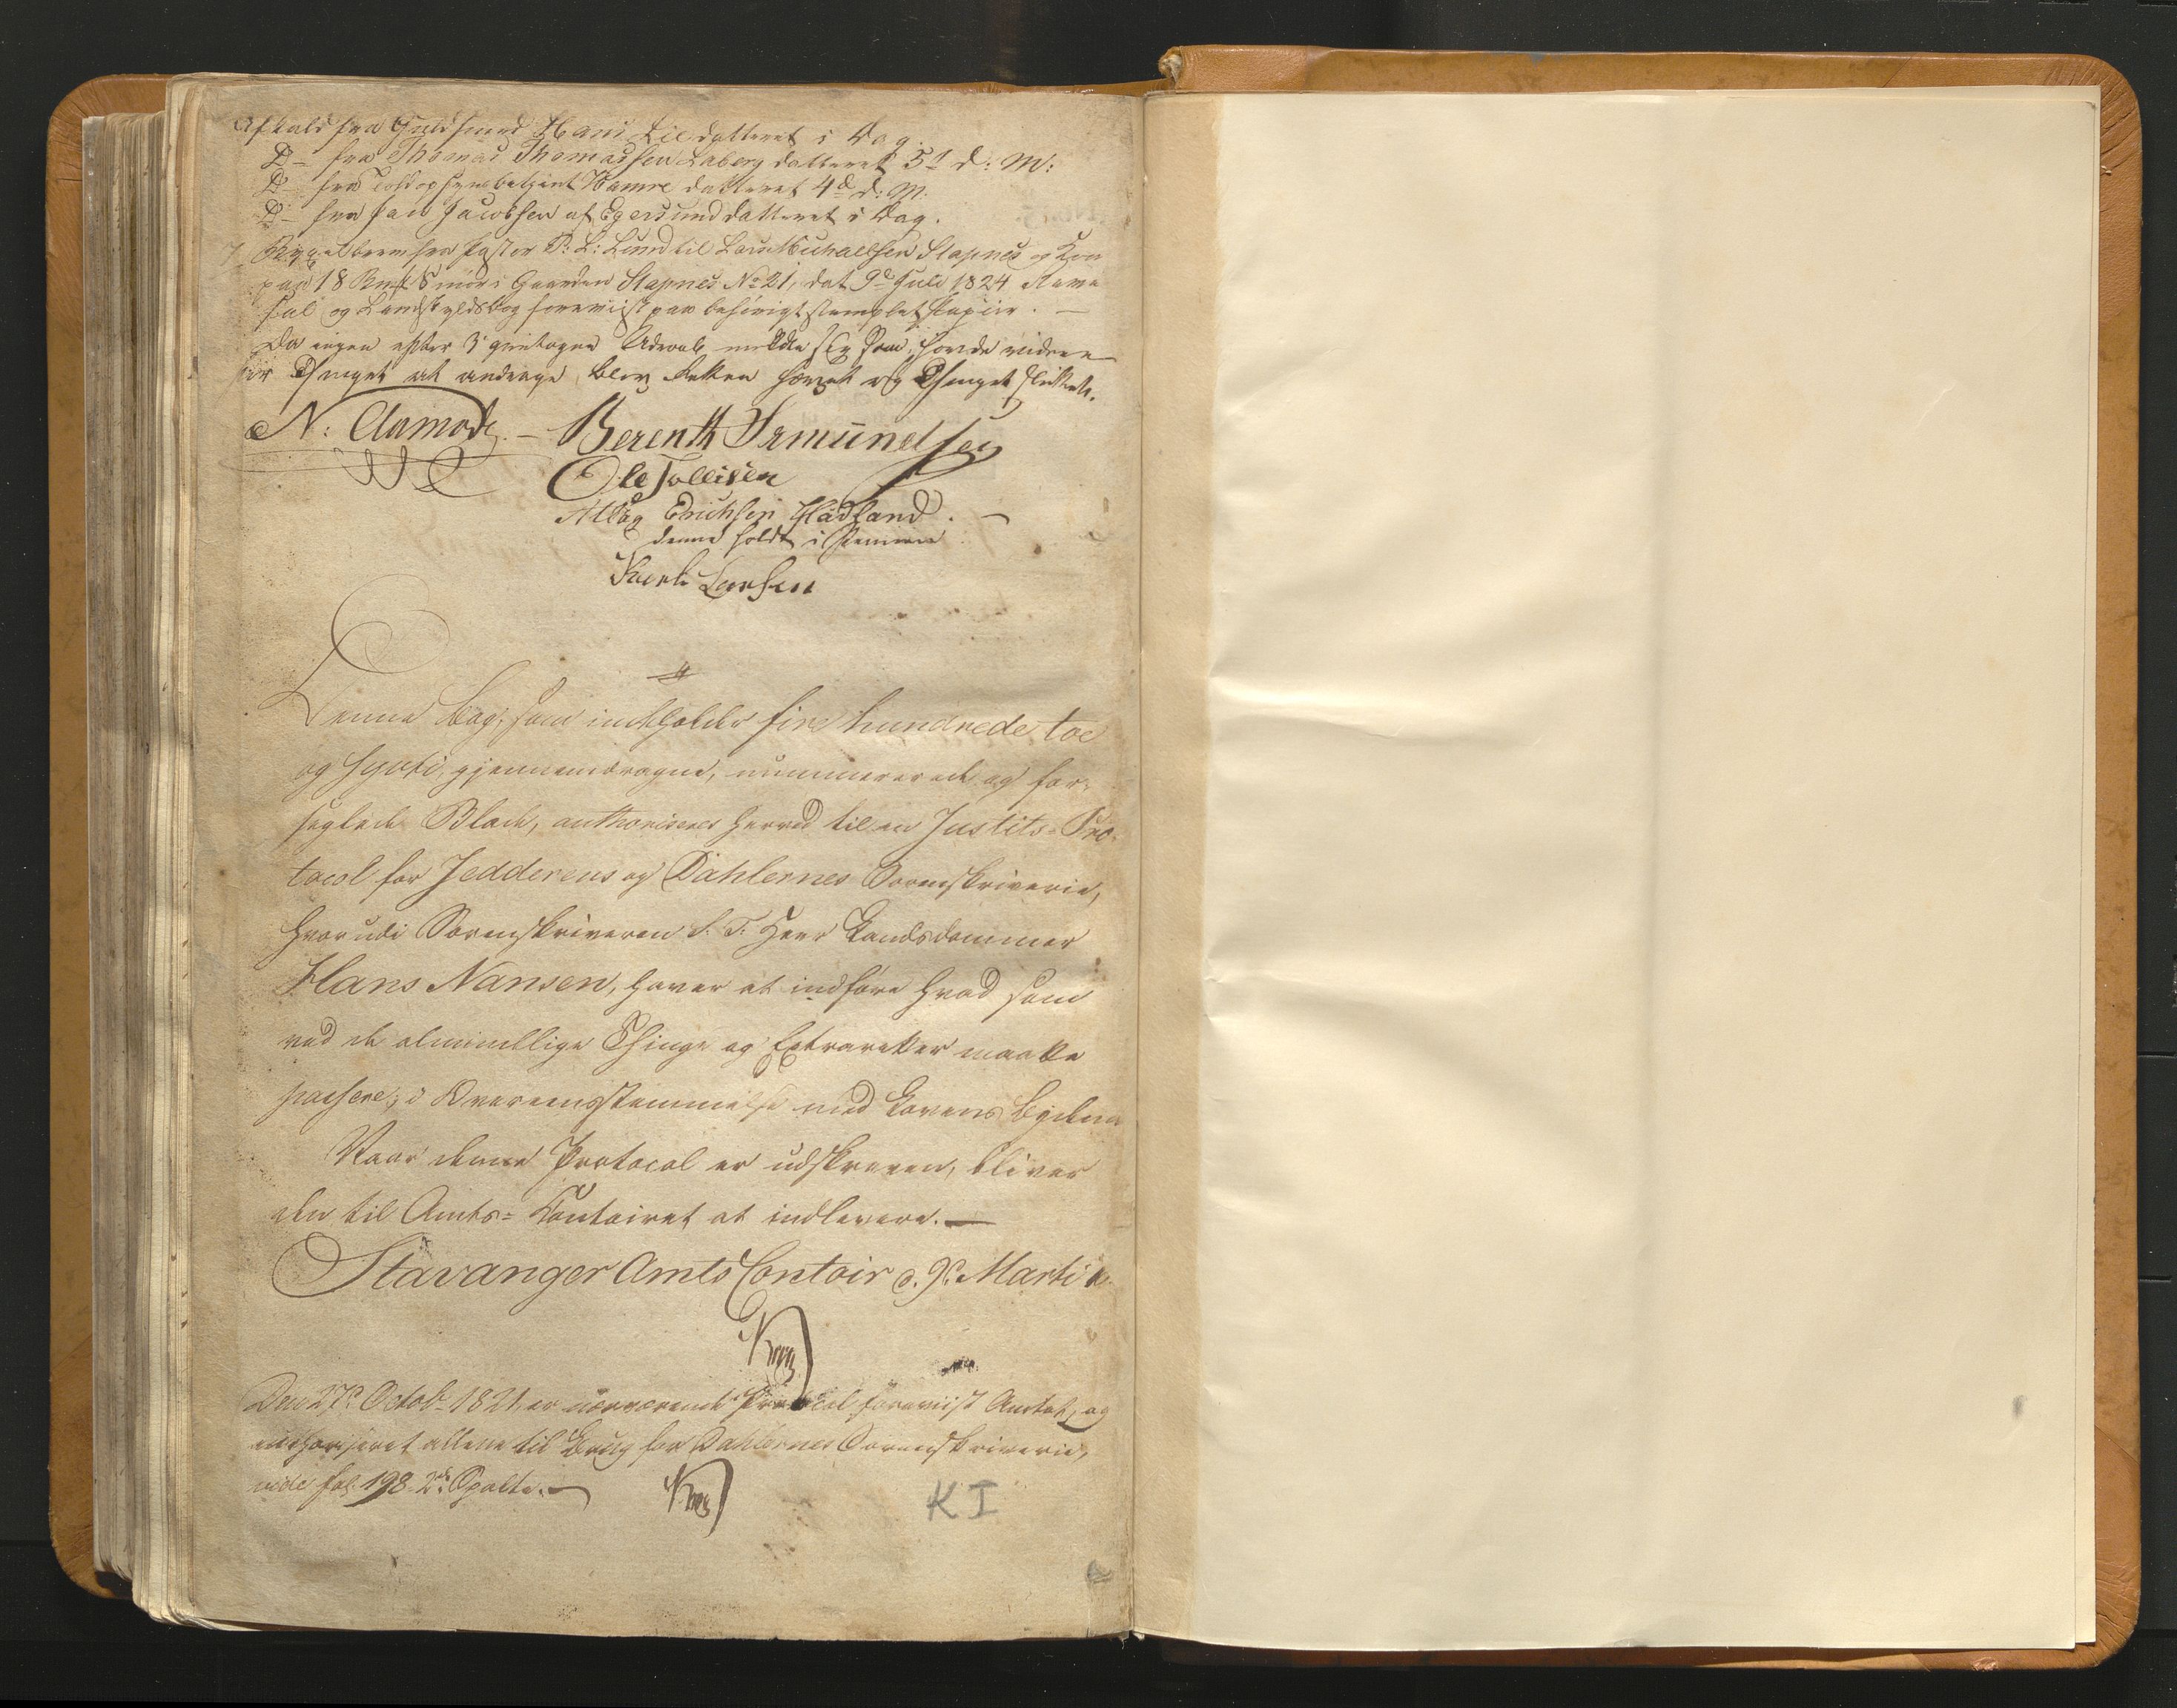 Afkald fra Guldsmed Hans Lie datteret i Dag.
D– fra Thomas Thomassen Laberg datteret 5t d: M:
D– fra Toldopsynsbetjent Hamre datteret 4d d: M.
D– fra Jacob Jacobsen af Egersund datteret i Dag.
7 Bygselbrev fra Pastor P: L: Lund til Lars Michaelsen Stapnes og Kone
paa 18 Bmk Smör i Gaarden Stapnes No 21, dat 9de Juli 1824
og Landskyldsbog foreviist paa behörigt stemplet Papiir. –
Da ingen efter 3 gientagne Udraab meldte sig som havde videre
for Thinget at andrage, blev Retten hævet og Thinget sluttet.
N: Aamodt. – Berenth Ormundsen
Ole Tollisen
Atlag Erichsen Hadland. –
denne holdt i Pennen
Larsen
Denne Bog, som indeholder fire hundrede toe
og syvti, gjennemdragne, nummererede og for-
seglede Blade, authoriseres herved til en Justits-Pro-
tocol for Jedderens og Dahlernes Sorenskriverie,
hvorudi Sorenskriveren S. T. Herr Landsdommer
Hans Nansen, haver at indföre hvad som
ved de almindelige Thinge og Extraretter maatte
passere, i Overeensstemmelse med Lovens Bydene
Naar denne Protocol er udskreven, bliver
den til Amts-Contoiret at indlevere. –
Stavanger Amts Contoir d. 9de Marti
Krog
Den 27de Octobr 1821, er nærværende Protocol foreviist Amtet, og
authoriseret allene til Brug for Dahlernes Sorenskriverie,
vide fol. 198 2de Spalte. –
Krog
KI